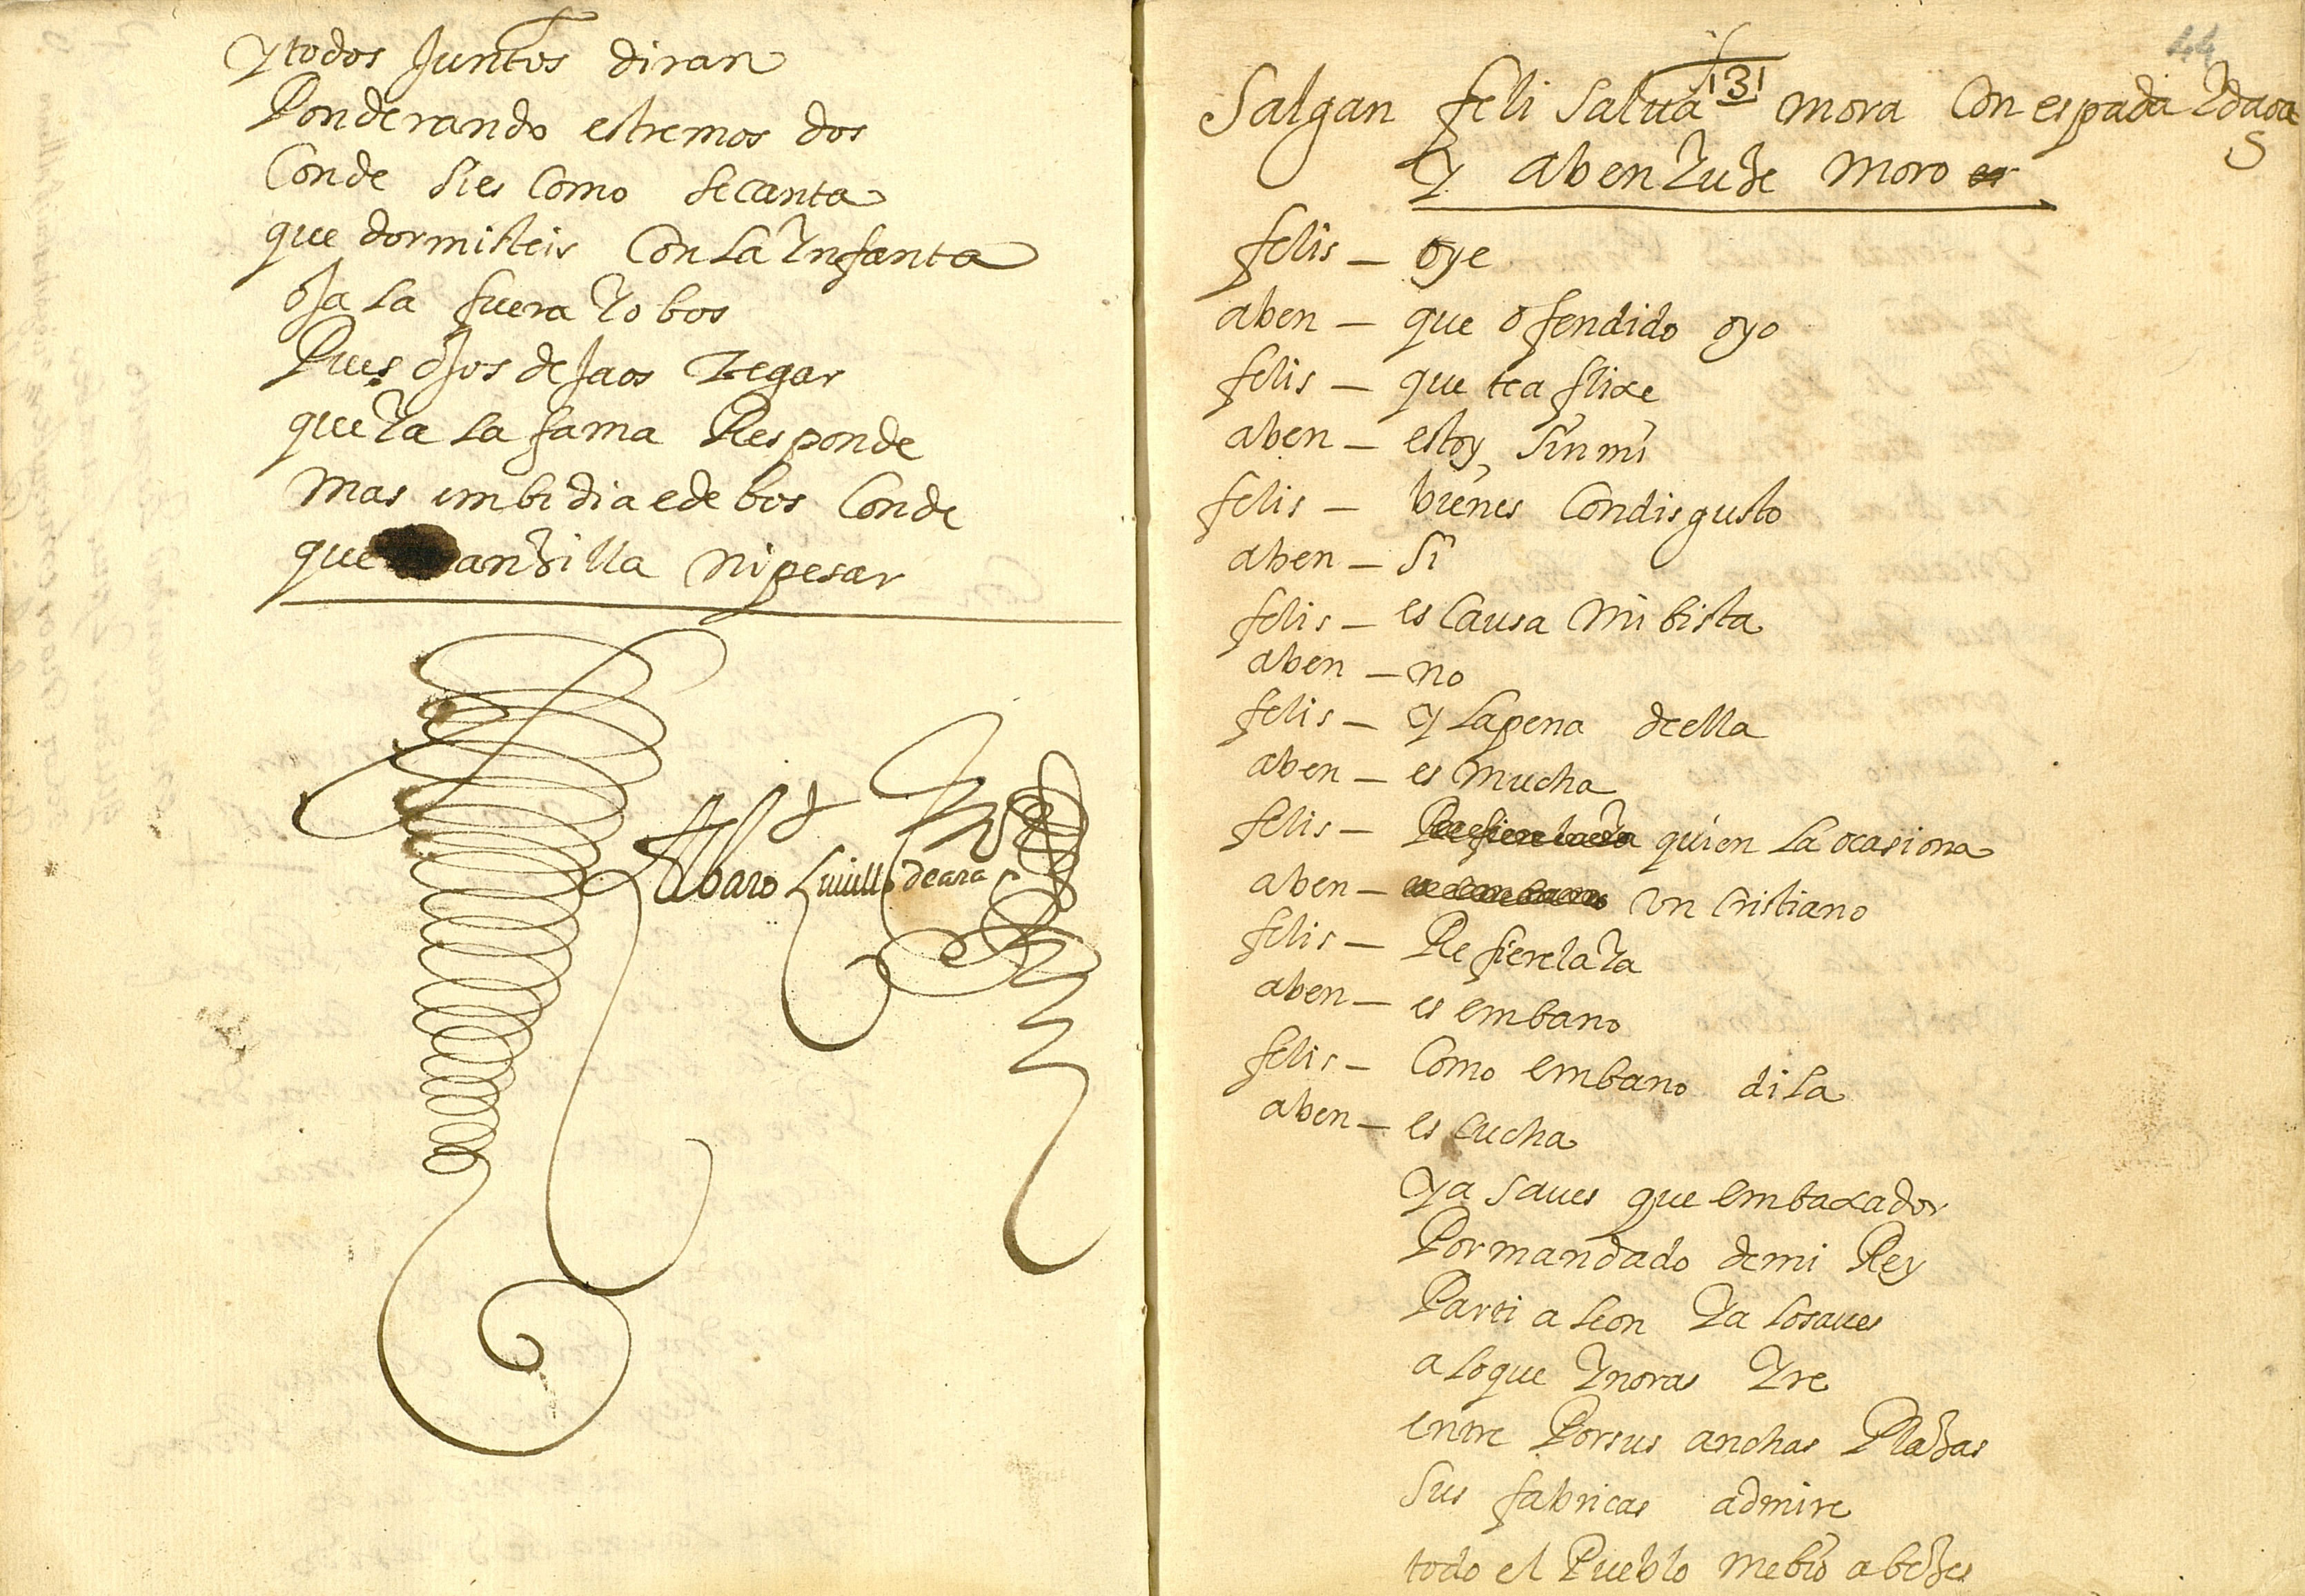 y todos Juntos diran
Ponderando estremos dos
Conde sies Como secanta
que dormisteis Con La Ynfanta
oJa La fuera Yo bos
Pues oJos deJaos zegar
que Ya La fama Responde
mas imbidia e de bos Conde
que anzilla ni pesar
Albaro Cuuillo de ara
44
Salgan feli salua 131 mora Con espada Y daga
5
Y aben Yuze moro
felis — oye
aben — que ofendido oyo
felis — que tea flixe
aben — estoy sin mi
felis — bienes Condisgusto
aben — si
felis — es Causa mi bista
aben — no
felis — y La pena deella
aben — es mucha
felis — Refierela Ya quien La ocasiona
aben — un cristiano
felis — Refierela Ya
aben — es embano
felis — Como embano di La
aben — es cucha
Ya saues que embaxador
Por mandado de mi Rey
Parti a Leon Ya Lo saues
a Lo que Ynoras Yre
entre Por sus anchas Plazas
sus fabricas admire
todo el Pueblo me bio a bezes